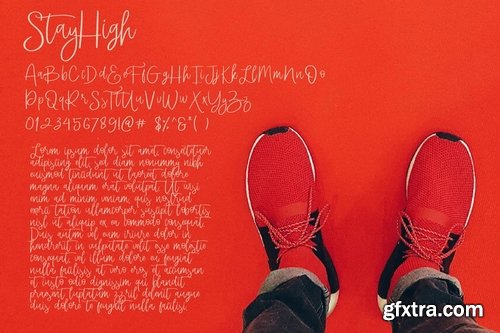 StayHigh
AaBbCcDdEeFfGgHhIiJjKkLlMmNnOo
PpQqRrSsTtUuVvWwXxYyZz
0123456789!@# $%^&*()
Lorem ipsum dolor sit amet, consectetuer
adipiscing elit, sed diam nonummy nibh
euismod tincidunt ut laoreet dolore
magna aliquam erat volutpat. Ut wisi
enim ad minim veniam, quis nostrud
exerci tation ullamcorper suscipit lobortis
nisl ut aliquip ex ea commodo consequat.
Duis autem vel eum iriure dolor in
hendrerit in vulputate velit esse molestie
consequat, vel illum dolore eu feugiat
nulla facilisis at vero eros et accumsan
et iusto odio dignissim qui blandit
praesent luptatum zzril delenit augue
duis dolore te feugait nulla facilisi.
gfxtra.com